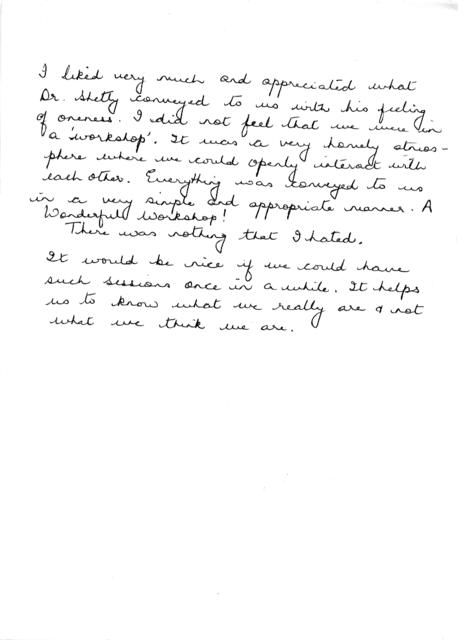 I liked very much and appreciated what
Dr. Shetty conveyed to us with his feeling
of oneness. I did not feel that we were in
a 'workshop'. It was a very homely atmos-
phere where we could openly interact with
each other. Everything was conveyed to us
in a very simple and appropriate manner. A
Wonderful Workshop!
There was nothing that I hated.
It would be nice if we could have
such sessions once in a while. It helps
us to know what we really are & not
what we think we are.